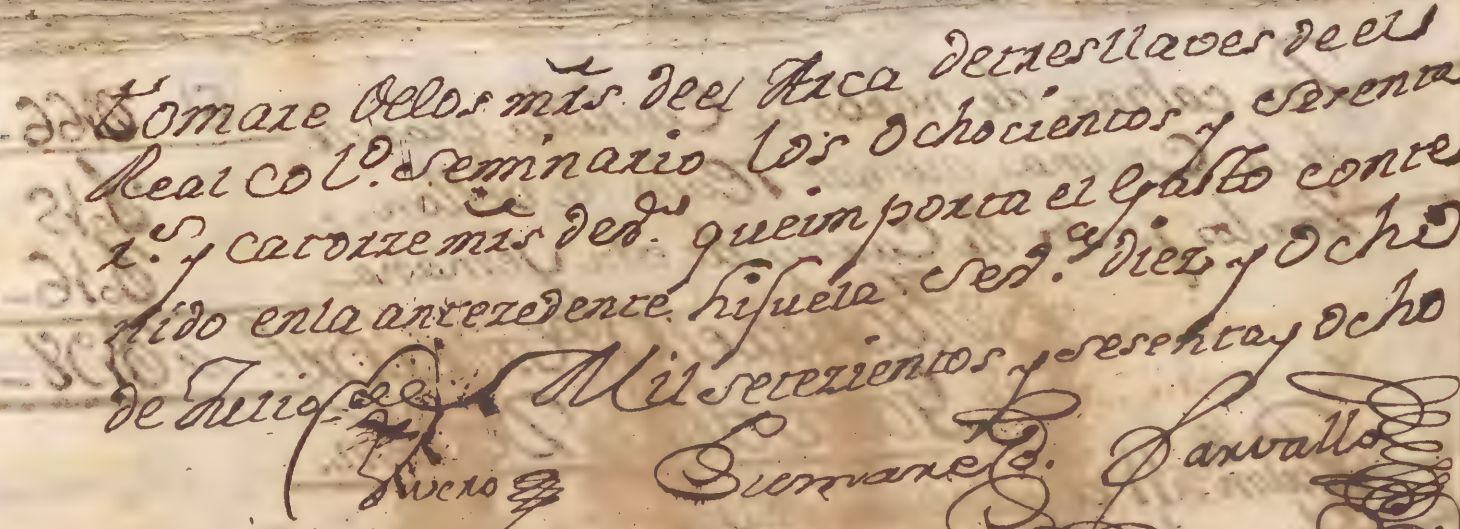 tomare delos mrs. deel Arca detresllaves deel
Real Colo. Seminario los Ochocientos y setenta
rs. y catorze mrs devn. queimporta el Gasto conte
nido enla antezedente hijuela. Seva. diez y Ocho
de Julio de Mil setezientos y sesenta y Ocho